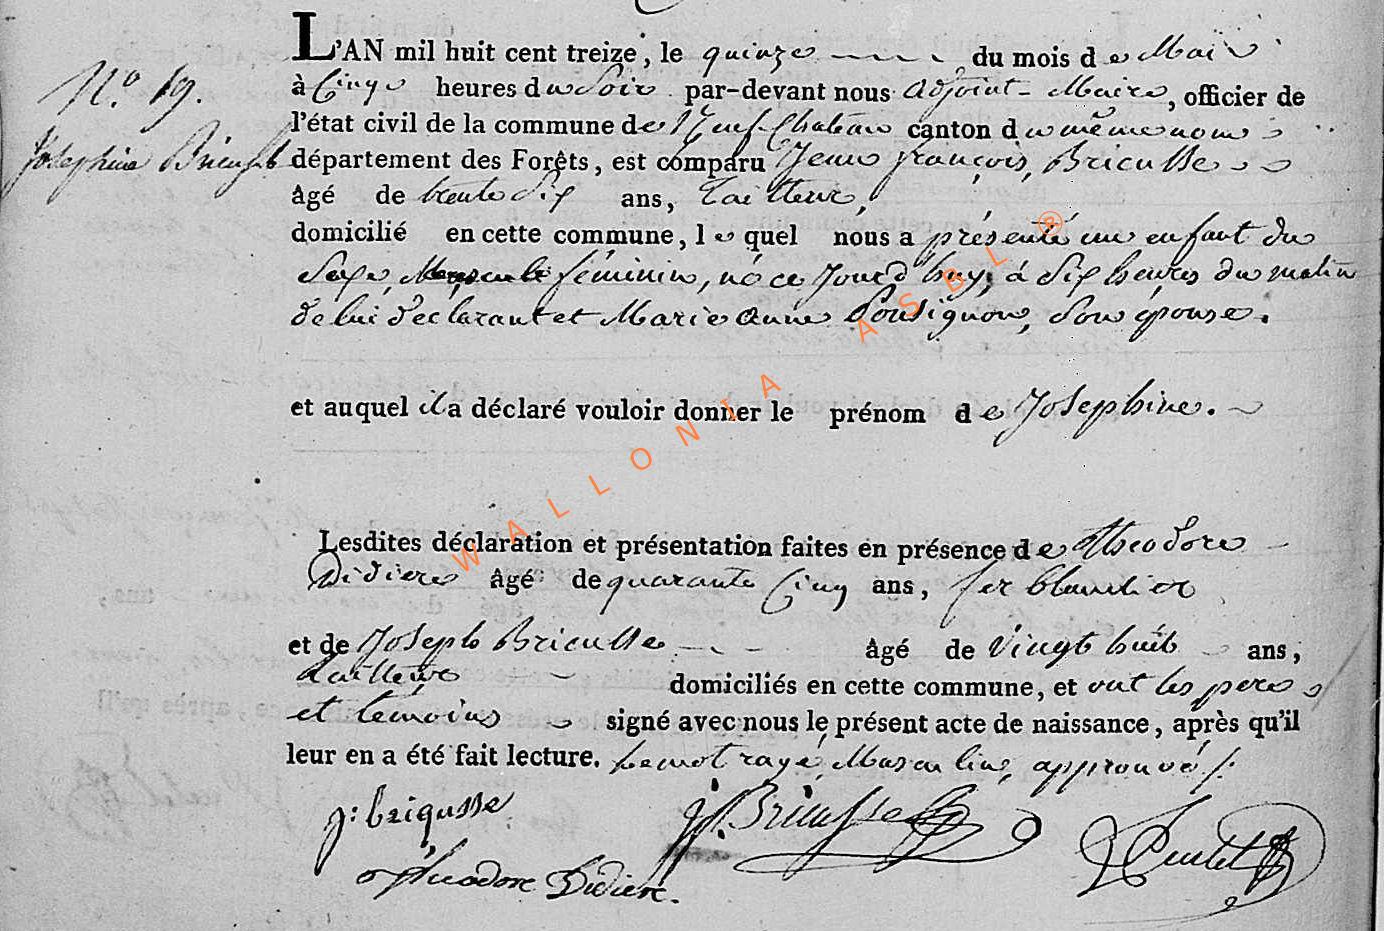 L'AN mil huit cent treize, le quinze du mois de Mai
N.o 19.
à Cinq heures du Soir par-devant nous adjoint-Maire, officier de
Josephine Bricusse
l'état civil de la commune de Neufchateau canton du même nom
département des Forêts, est comparu Jean françois, Bricusse
âgé de trente Six ans, tailleur,
domicilié en cette commune, le quel nous a présenté un enfant du
Sexe, Masculin féminin, né ce Jourd'huy, à Six heures du matin
de lui déclarant et Marie Anne Ponsignon, Son épouse.
et auquel il a déclaré vouloir donner le prénom de Josephine.
Lesdites déclaration et présentation faites en présence de Théodore
Didier âgé de quarante Cinq ans, ferblantier
et de Joseph Bricusse âgé de Vingt huit ans,
tailleur domiciliés en cette commune, et ont les pere
et témoins signé avec nous le présent acte de naissance, après qu'il
leur en a été fait lecture. Le mot rayé, Masculin, approuvé /:
j: brigusse. j f. Bricusse
Theodore Didier.
WALLONIA ASBL ®